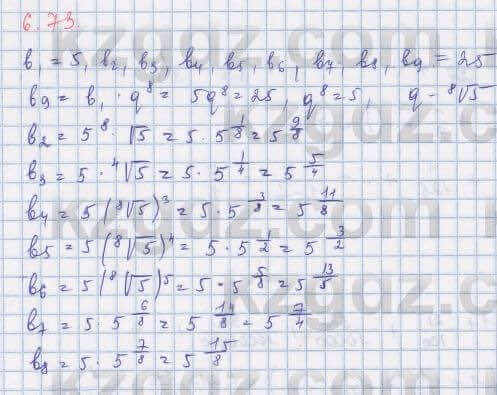 6.73.
b₁ = 5, b₂, b₃, b₄, b₅, b₆, b₇, b₈, b₉ = 25
b₉ = b₁ · q⁸ = 5q⁸ = 25, q⁸ = 5, q - ⁸√5
b₂ = 5 ⁸·√5 = 5 · 5^(1/8) = 5^(9/8)
b₃ = 5 · ⁴√5 = 5 · 5^(1/4) = 5^(5/4)
b₄ = 5 (⁸√5)³ = 5 · 5^(3/8) = 5^(11/8)
b₅ = 5 (⁸√5)⁴ = 5 · 5^(1/2) = 5^(3/2)
b₆ = 5 (⁸√5)⁵ = 5 · 5^(5/8) = 5^(13/8)
b₇ = 5 · 5^(6/8) = 5^(14/8) = 5^(7/4)
b₈ = 5 · 5^(7/8) = 5^(15/8)
kzgdz.com